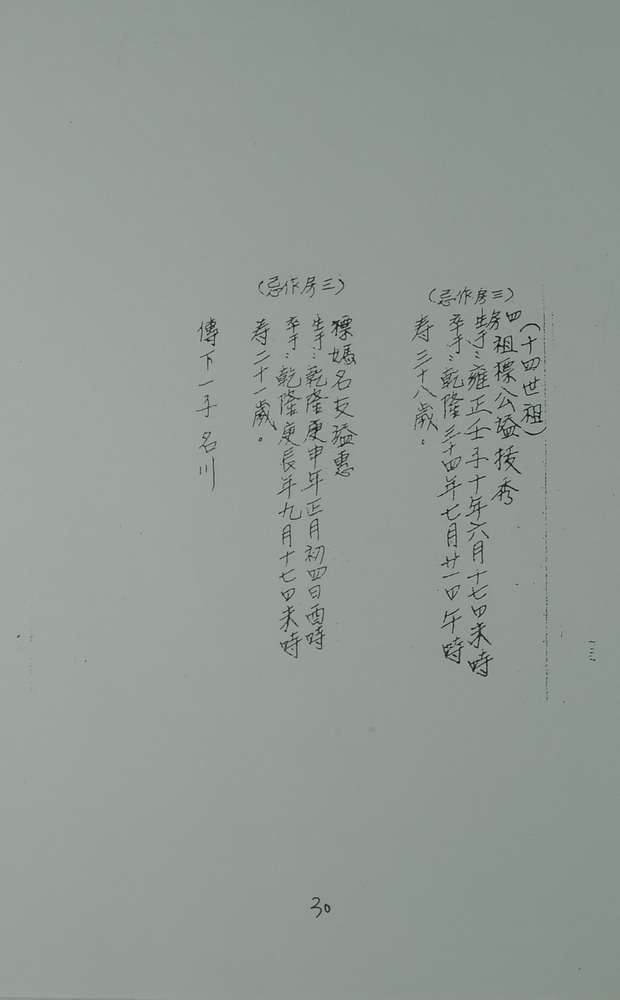 (十四世祖)
四房祖標公諡技秀
生于:雍正壬子十年六月十七日未時
卒于:乾隆三十四年七月廿一日午時
寿三十八歲。
(三房作忌)
標媽名友諡惠
生于:乾隆庚申年正月初四日酉時
卒于:乾隆庚辰年九月十七日未時
寿二十一歲。
(三房作忌)
傳下一子名川
30